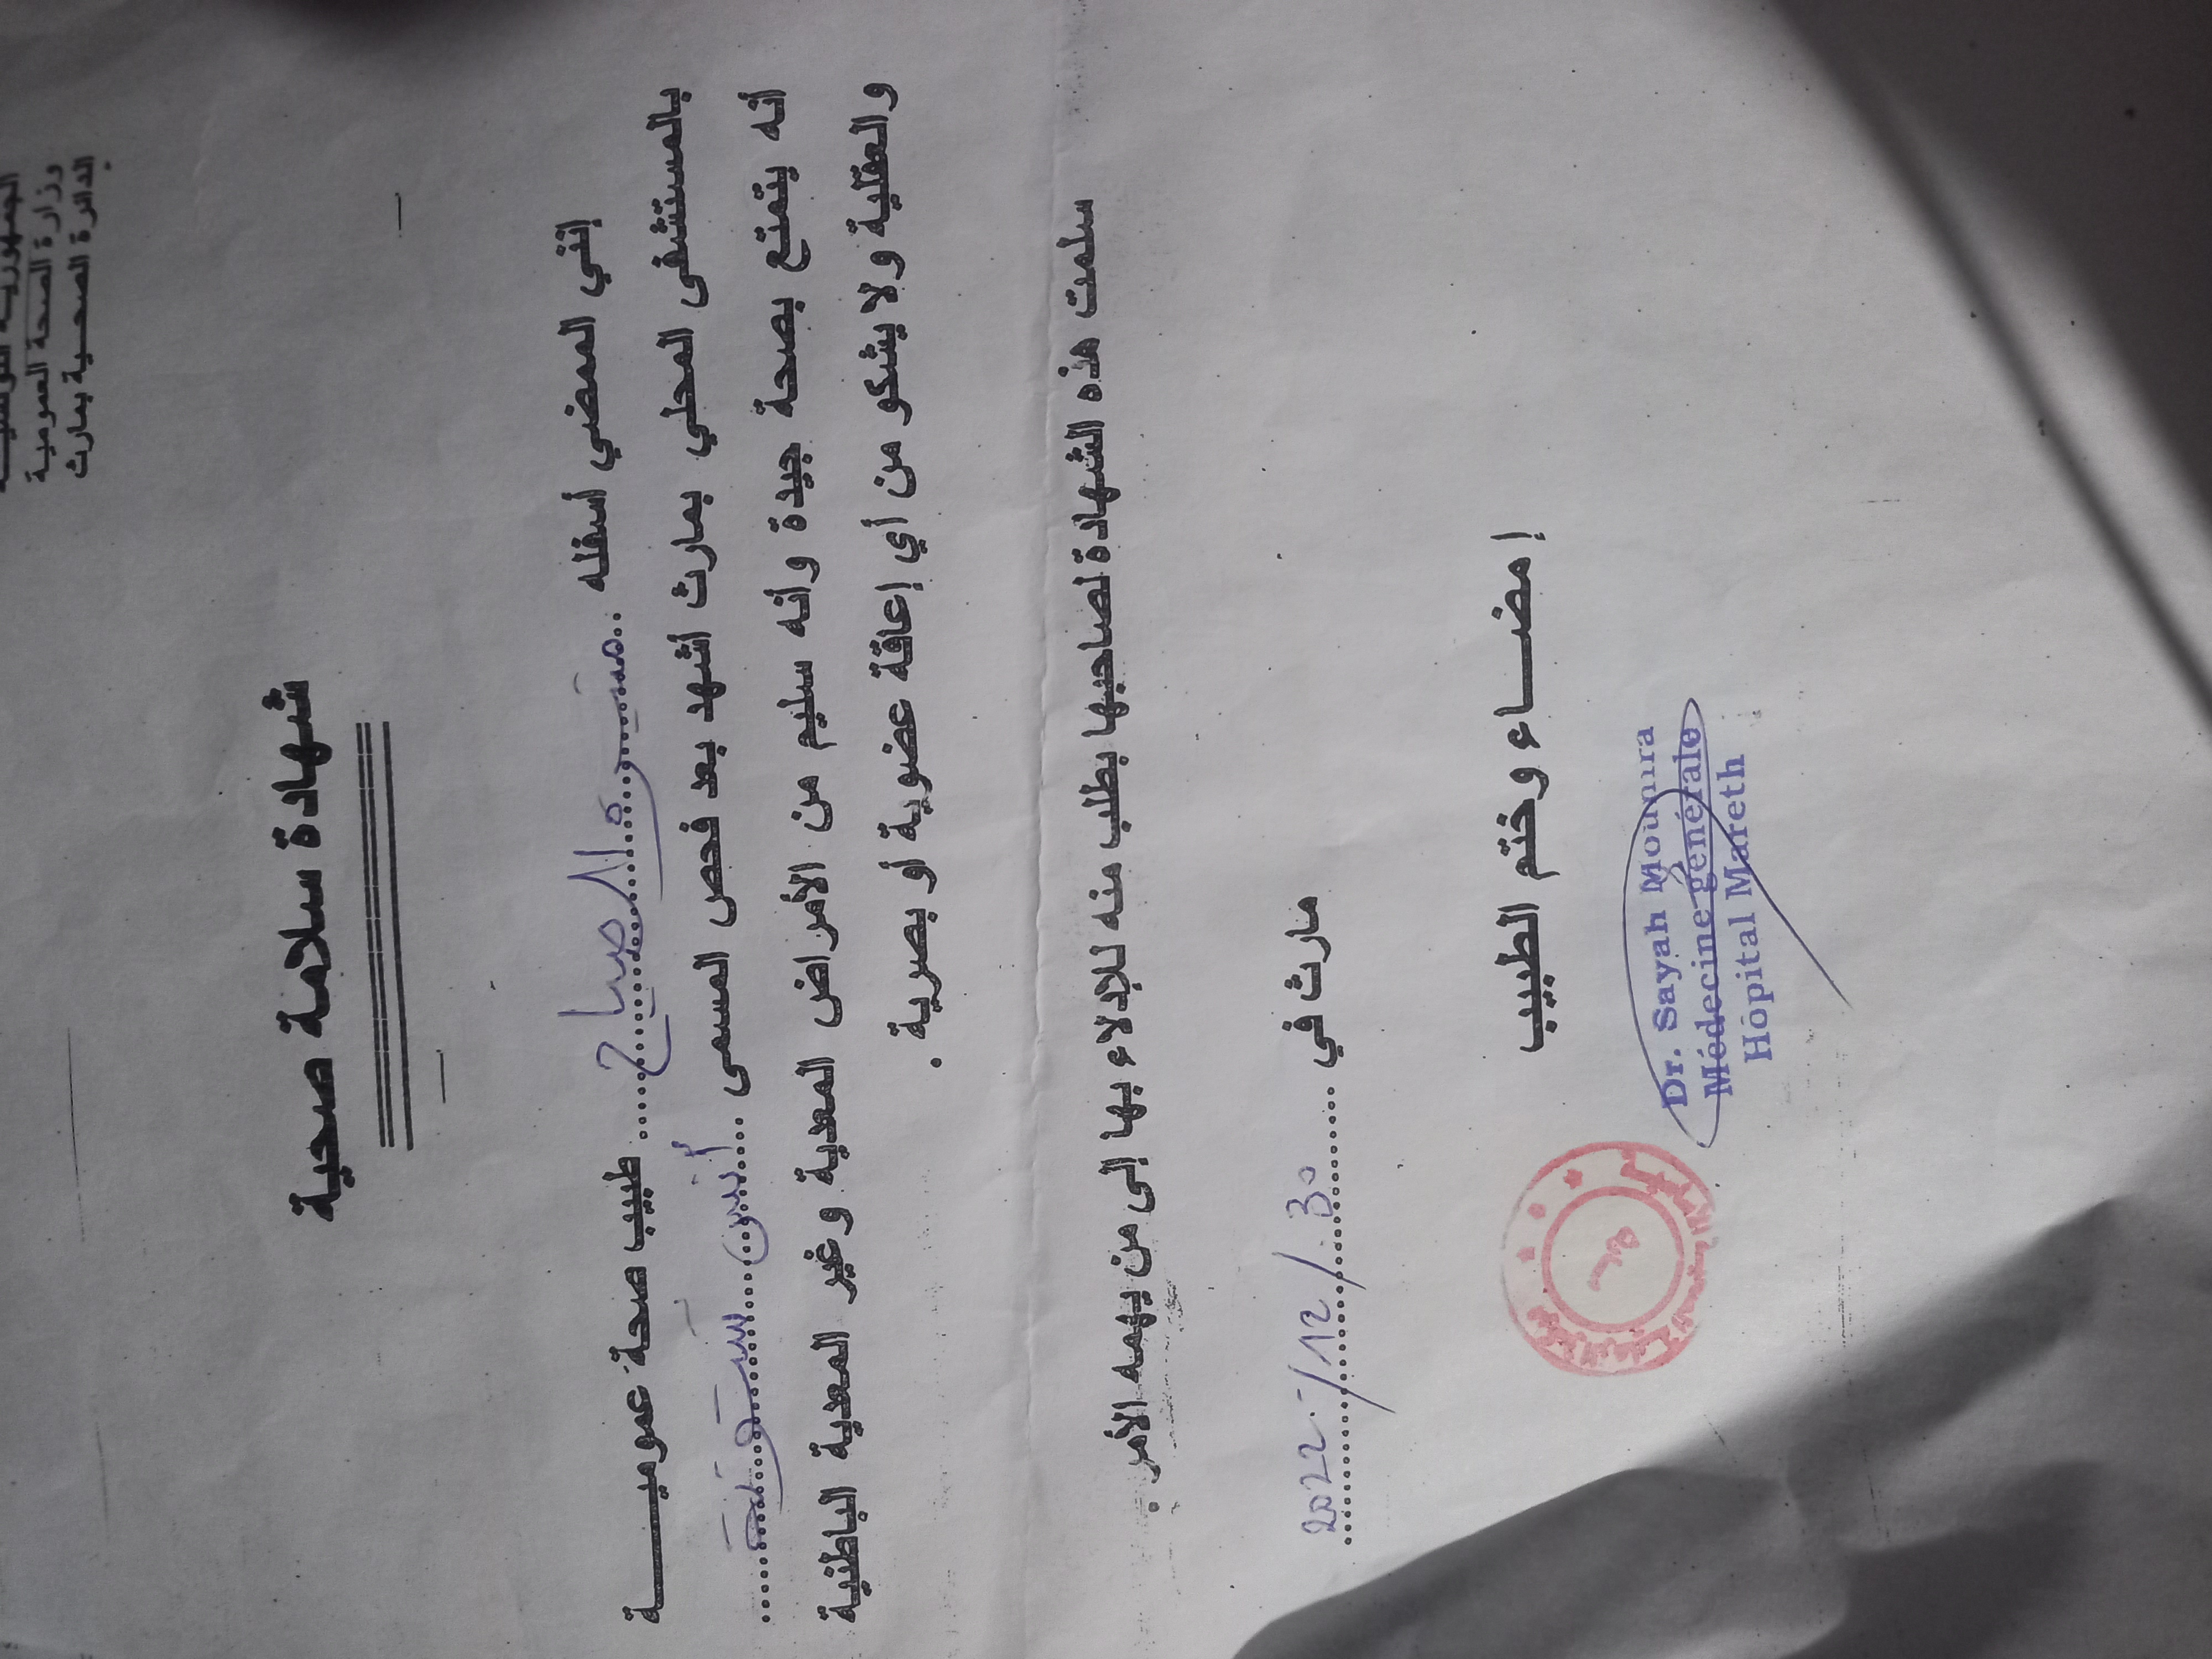 الجمهورية التونسية
وزارة الصحة العمومية
الدائرة الصحية بمارث
شهادة سلامة صحية
إنني الممضي أسفله .. منيرة الصياح ..... طبيب صحة عموميــــــة
بالمستشفى المحلي بمارث أشهد بعد فحص المسمى .... أنيس ......
أنه يتمتع بصحة جيدة وأنه سليم من الأمراض المعدية وغير المعدية الباطنية
والعقلية ولا يشكو من أي إعاقة عضوية أو بصرية .
سلمت هذه الشهادة لصاحبها بطلب منه للإدلاء بها إلى من يهمه الأمر .
مارث في ......... 30 / 12 / 2022
إمضـــاء وختم الطبيب
Dr. Sayah Mounira
Médecine générale
Hôpital Mareth